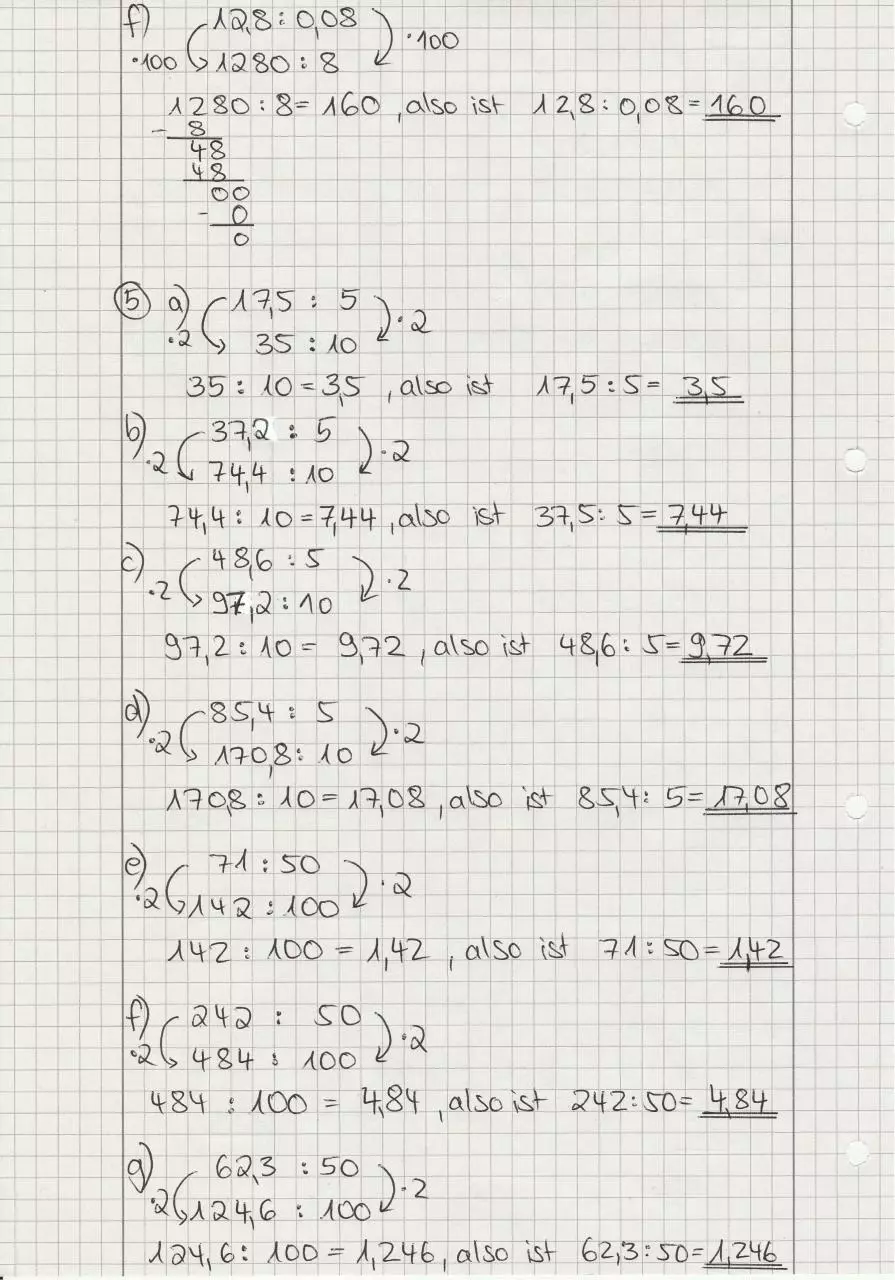 f) 12,8 : 0,08 ·100
·100 1280 : 8
1280 : 8 = 160 , also ist 12,8 : 0,08 = 160
- 8
48
48
00
- 0
0
5 a) 17,5 : 5 ·2
·2 35 : 10
35 : 10 = 3,5 , also ist 17,5 : 5 = 3,5
b) 37,2 : 5 ·2
·2 74,4 : 10
74,4 : 10 = 7,44 , also ist 37,5 : 5 = 7,44
c) 48,6 : 5 ·2
·2 97,2 : 10
97,2 : 10 = 9,72 , also ist 48,6 : 5 = 9,72
d) 85,4 : 5 ·2
·2 170,8 : 10
170,8 : 10 = 17,08 , also ist 85,4 : 5 = 17,08
e) 71 : 50 ·2
·2 142 : 100
142 : 100 = 1,42 , also ist 71 : 50 = 1,42
f) 242 : 50 ·2
·2 484 : 100
484 : 100 = 4,84 , also ist 242 : 50 = 4,84
g) 62,3 : 50 ·2
·2 124,6 : 100
124,6 : 100 = 1,246 , also ist 62,3 : 50 = 1,246